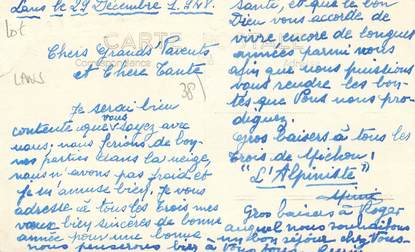 Lans le 29 Décembre 1948.
Lot
LANS
38
CARTE POSTALE
Correspondance
Chers Grands Parents
et Chère Tante
Je serai bien
contente que vous soyez avec
nous, nous ferions de bon-
nes parties dans la neige,
nous n'avons pas froid et
je m'amuse bien. Je vous
adresse à tous les trois mes
vœux bien sincères de bonne
année pour une bonne
santé, et que le bon
Dieu vous accorde de
vivre encore de longues
années parmi nous
afin que nous puissions
vous rendre les bon-
tés que Vous nous pro-
diguez.
Gros baisers à tous les
trois de Michou,
"L'Alpiniste"
Gros baisers à Roger
auquel nous souhaitons
un bon séjour chez vous
nous penserons bien à vous tous